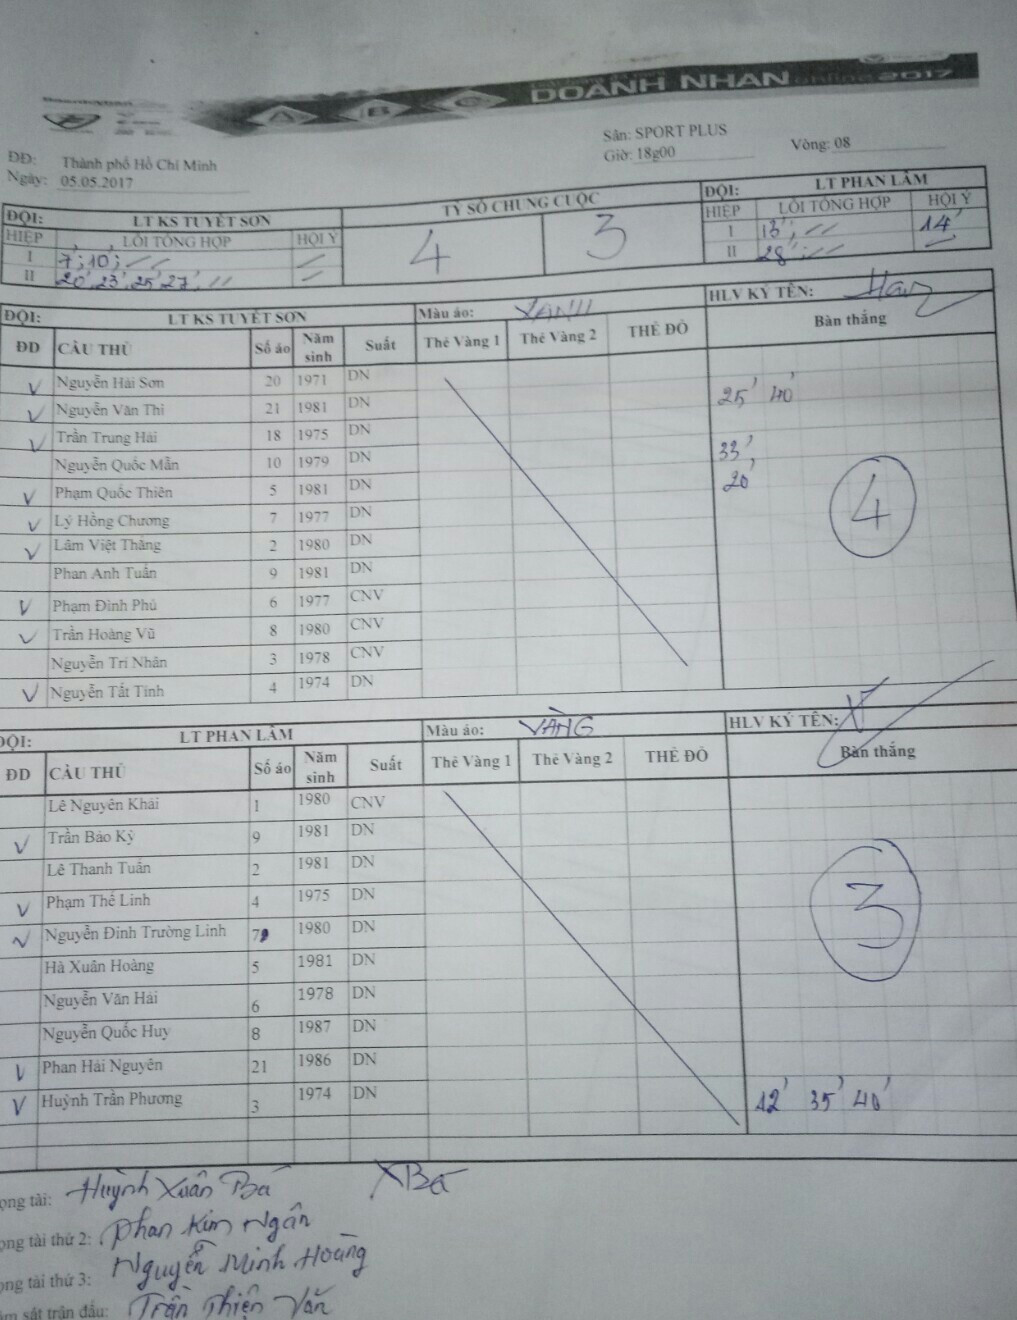 A B C DOANH NHÂN online 2017
ĐĐ: Thành phố Hồ Chí Minh Sân: SPORT PLUS Vòng: 08
Ngày: 05.05.2017 Giờ: 18g00
ĐỘI: LT KS TUYẾT SƠN TỶ SỐ CHUNG CUỘC ĐỘI: LT PHAN LÂM
HIỆP LỖI TỔNG HỢP HỘI Ý 4 3 HIỆP LỖI TỔNG HỢP HỘI Ý
I 7'; 10'; I 13'; 14'
II 20' 23' 25' 27' II 28'
ĐỘI: LT KS TUYẾT SƠN Màu áo: XANH HLV KÝ TÊN:
ĐD CẦU THỦ Số áo Năm sinh Suất Thẻ Vàng 1 Thẻ Vàng 2 THẺ ĐỎ Bàn thắng
V Nguyễn Hải Sơn 20 1971 DN
V Nguyễn Văn Thi 21 1981 DN 25' 40'
V Trần Trung Hải 18 1975 DN
Nguyễn Quốc Mẫn 10 1979 DN 33'
V Phạm Quốc Thiên 5 1981 DN 20' 4
V Lý Hồng Chương 7 1977 DN
V Lâm Việt Thăng 2 1980 DN
Phan Anh Tuấn 9 1981 DN
V Phạm Đình Phú 6 1977 CNV
V Trần Hoàng Vũ 8 1980 CNV
Nguyễn Trí Nhân 3 1978 CNV
V Nguyễn Tất Tinh 4 1974 DN
ĐỘI: LT PHAN LÂM Màu áo: VÀNG HLV KÝ TÊN:
ĐD CẦU THỦ Số áo Năm sinh Suất Thẻ Vàng 1 Thẻ Vàng 2 THẺ ĐỎ Bàn thắng
Lê Nguyên Khải 1 1980 CNV
V Trần Bảo Kỳ 9 1981 DN
Lê Thanh Tuấn 2 1981 DN
V Phạm Thế Linh 4 1975 DN 3
V Nguyễn Đình Trường Linh 1980 DN
Hà Xuân Hoàng 5 1981 DN
Nguyễn Văn Hải 6 1978 DN
Nguyễn Quốc Huy 8 1987 DN
V Phan Hải Nguyên 21 1986 DN
V Huỳnh Trần Phương 3 1974 DN 12' 35' 40'
ọng tài: Huỳnh Xuân Bá XBá
ọng tài thứ 2: Phan Kim Ngân
ọng tài thứ 3: Nguyễn Minh Hoàng
ám sát trận đấu: Trần Thiện Văn